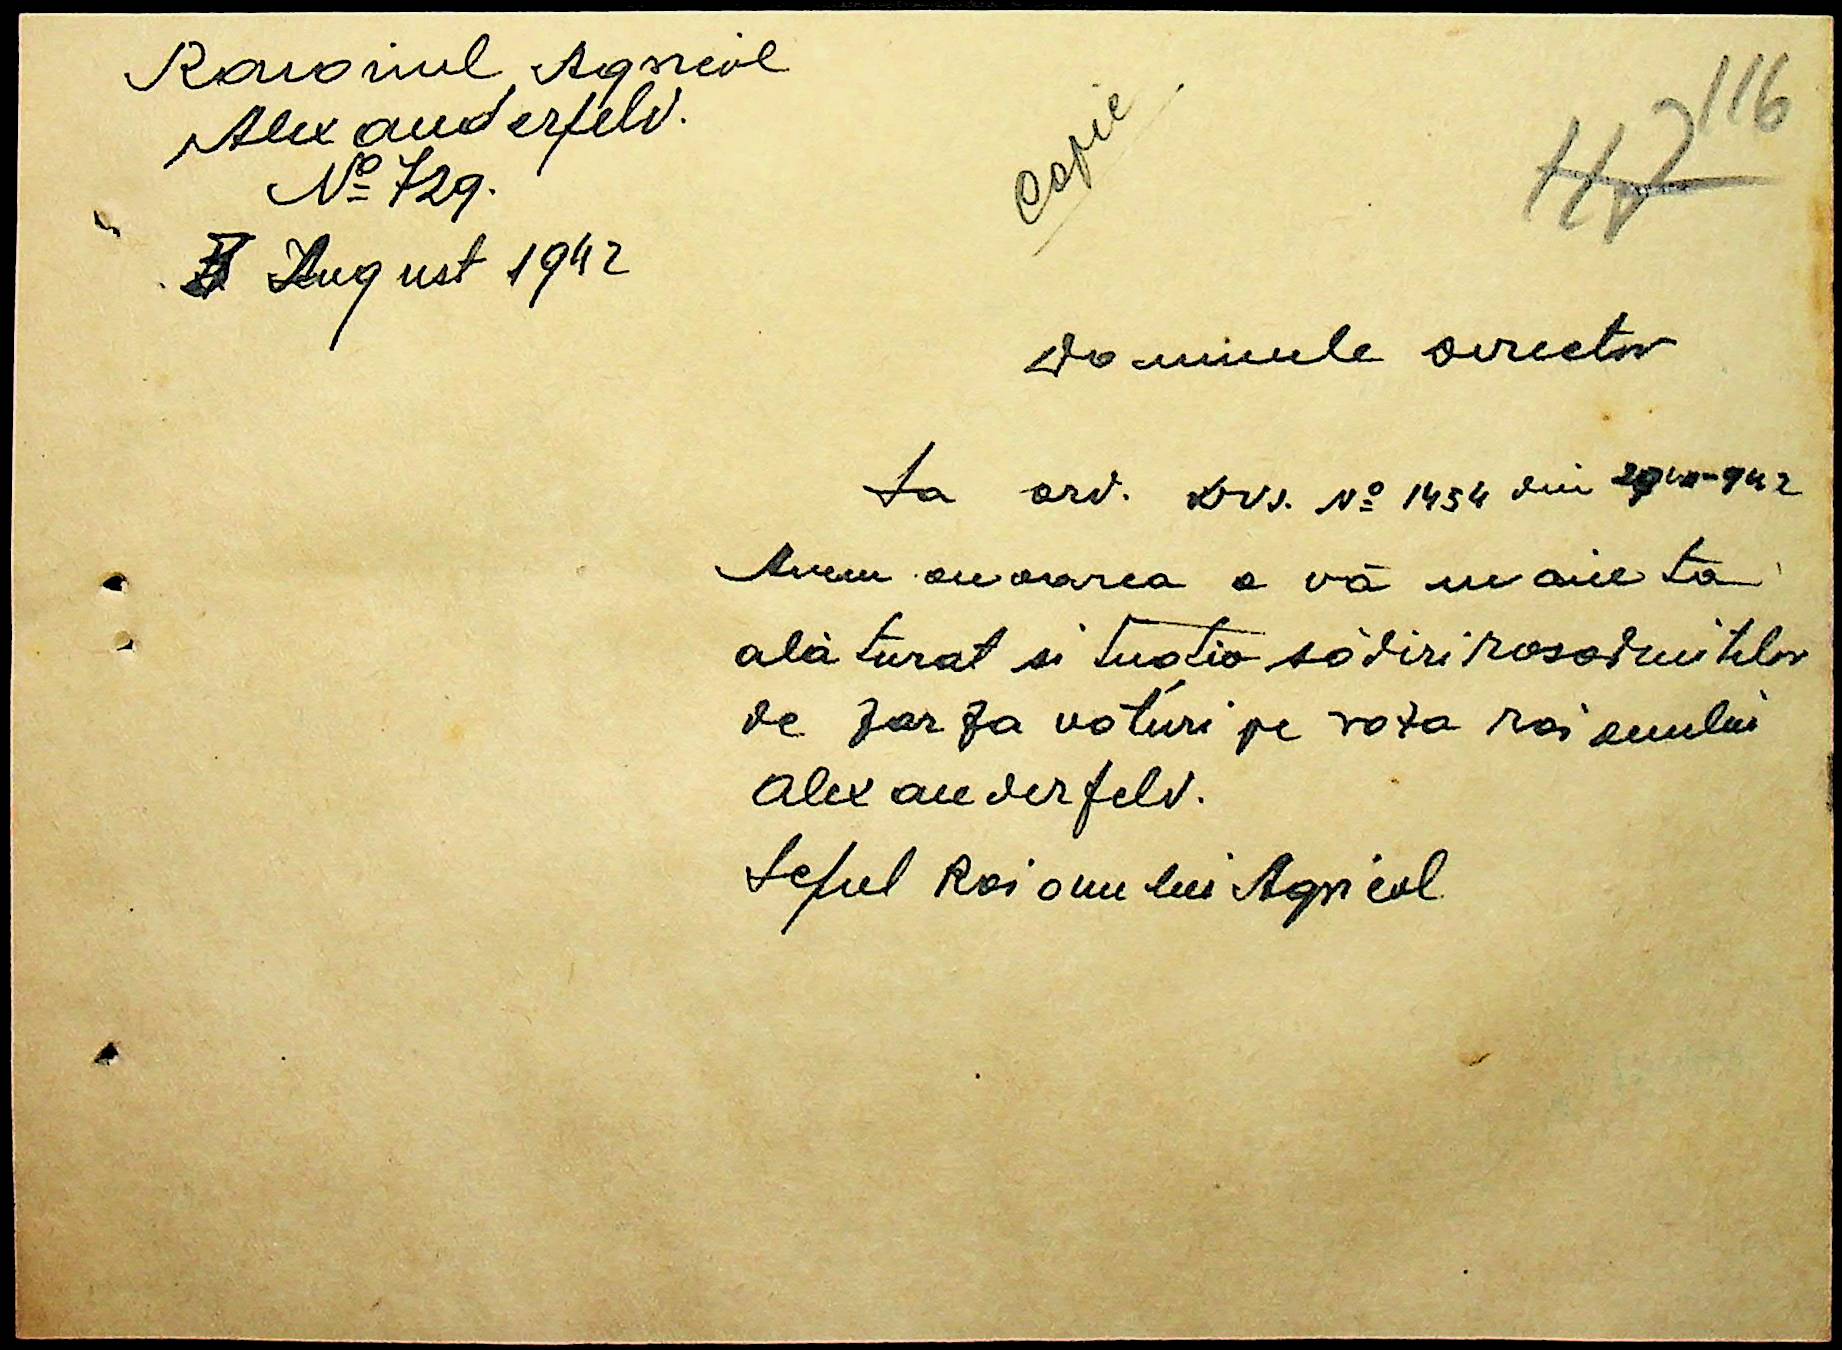 Raionul Agricol
Alexanderfeld.
No 729.
August 1942
Copie
116
Domnule director
La ord. Dvs. No 1454 din 29 VII-942
Avem onoarea a vă înainta
alăturat situatia sădiri rasadnitelor
de zarzavaturi pe raza raionului
Alexanderfeld.
Seful Raionului Agricol